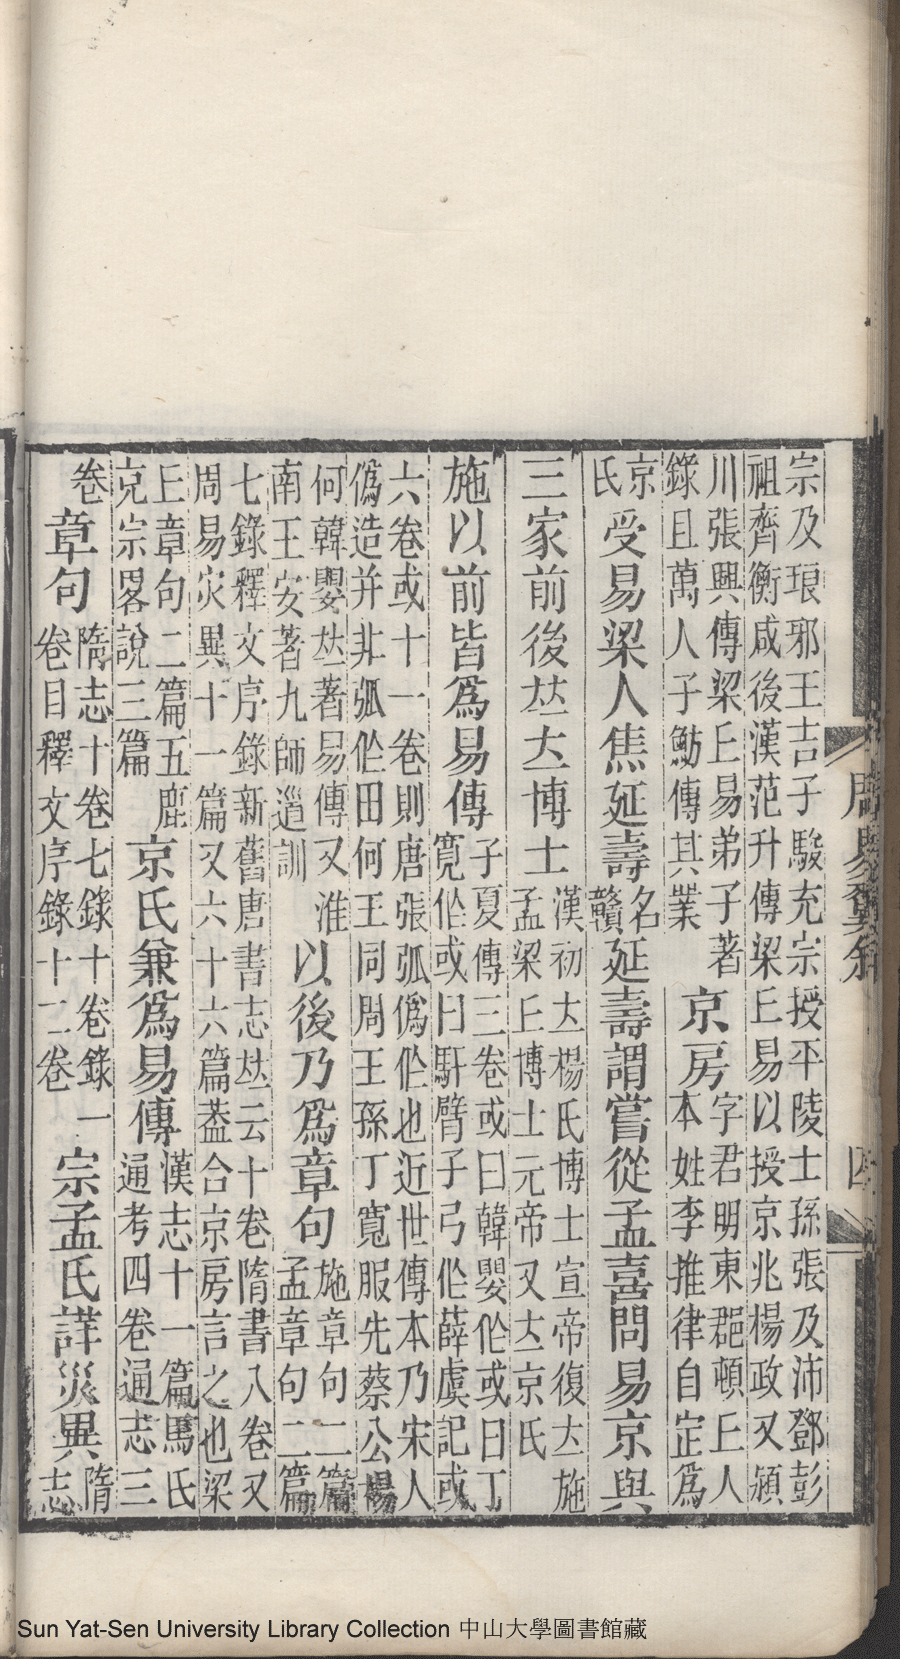 宗及琅邪王吉子駿充宗授平陵士孫張及沛鄧彭
祖齊衡咸後漢范升傳梁丘易以授京兆楊政又潁
川張興傳梁丘易弟子著
錄且萬人子魴傳其業
京房
字君明東郡頓丘人
本姓李推律自定爲
京氏受易梁人焦延壽名贛延壽謂嘗從孟喜問易京與
三家前後竝立博士
漢初立楊氏博士宣帝復立施
孟梁丘博士元帝又立京氏
施以前皆爲易傳
子夏傳三卷或曰韓嬰作或曰丁
寬作或曰馯臂子弓作薛虞記或
六卷或十一卷則唐張弧僞作也近世傳本乃宋人
僞造并非弧作田何王同周王孫丁寬服先蔡公楊
何韓嬰竝著易傳又淮
南王安著九師道訓
以後乃爲章句
施章句二篇
孟章句二篇
七錄釋文序錄新舊唐書志竝云十卷隋書八卷又
周易灾異十一篇又六十六篇葢合京房言之也梁
丘章句二篇五鹿
充宗畧說三篇
京氏兼爲易傳
漢志十一篇馬氏
通考四卷通志三
卷
章句
隋志十卷七錄十卷錄一
卷目釋文序錄十二卷
宗孟氏詳災異
隋
志
周易
四
Sun Yat-Sen University Library Collection 中山大學圖書館藏